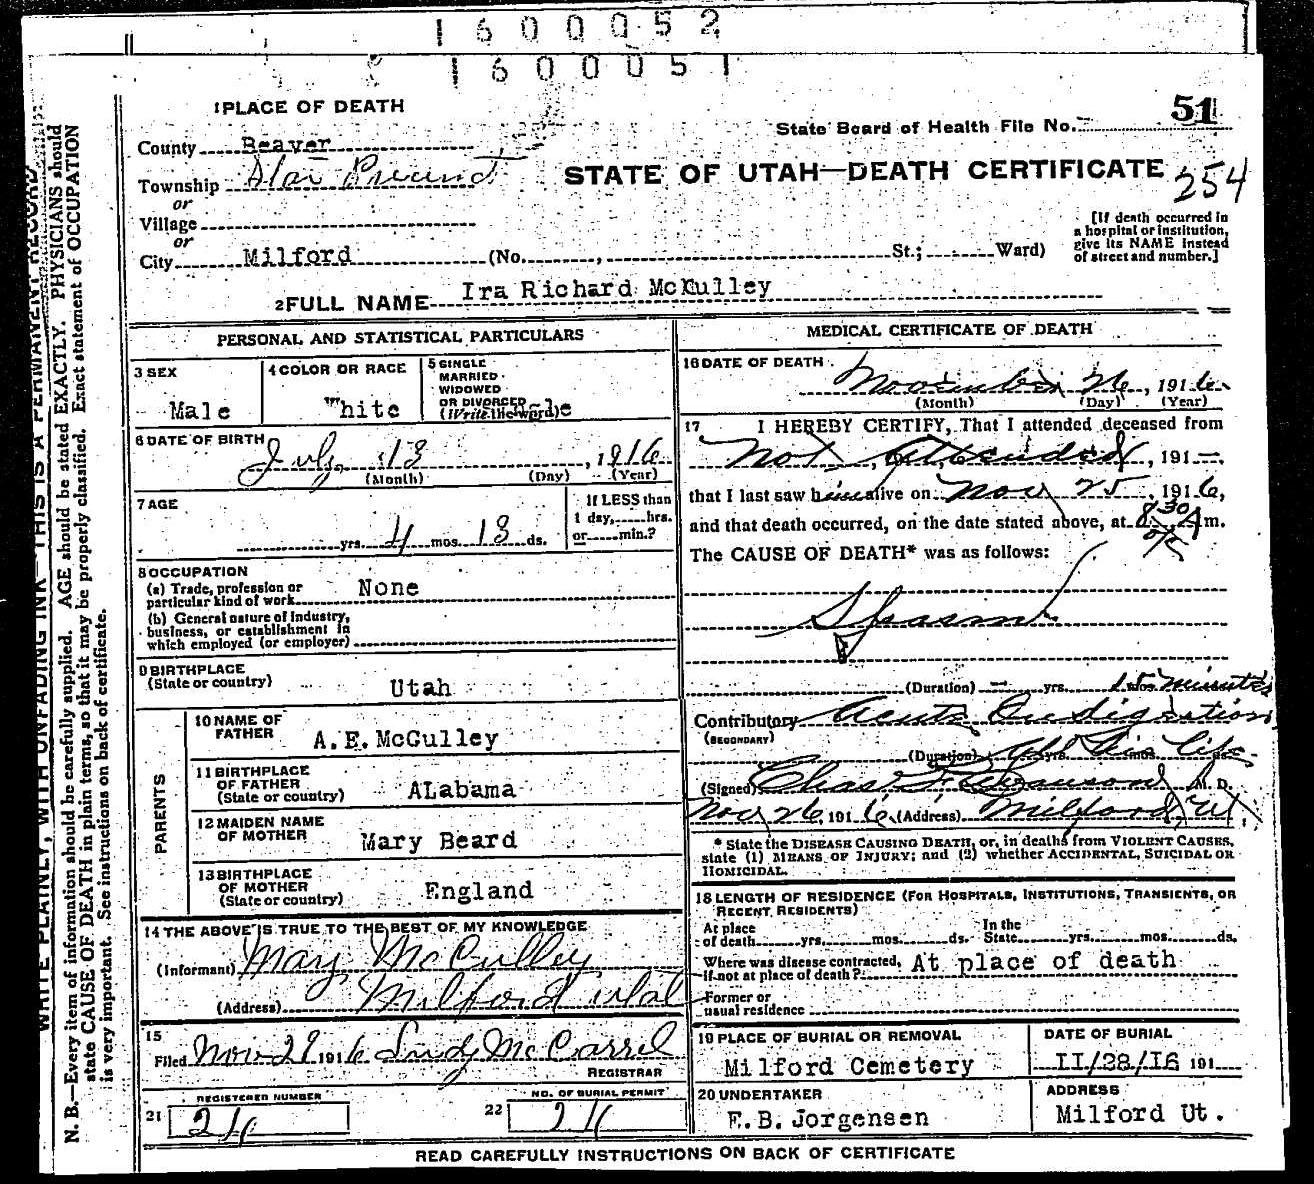 1600052
1600051
1 PLACE OF DEATH
51
State Board of Health File No.
County Beaver
STATE OF UTAH—DEATH CERTIFICATE
254
Township Star Precinct
or
Village
or
City Milford (No. , St.; Ward)
[If death occurred in
a hospital or institution,
give its NAME instead
of street and number.]
2 FULL NAME Ira Richard McCulley
PERSONAL AND STATISTICAL PARTICULARS
3 SEX
Male
4 COLOR OR RACE
White
5 SINGLE
MARRIED
WIDOWED
OR DIVORCED
(Write the word)
6 DATE OF BIRTH
July 13, 1916
(Month) (Day) (Year)
7 AGE
yrs. 4 mos. 13 ds.
If LESS than
1 day, hrs.
or min.?
8 OCCUPATION
(a) Trade, profession or
particular kind of work None
(b) General nature of industry,
business, or establishment in
which employed (or employer)
9 BIRTHPLACE
(State or country)
Utah
PARENTS
10 NAME OF
FATHER
A.E. McCulley
11 BIRTHPLACE
OF FATHER
(State or country)
ALabama
12 MAIDEN NAME
OF MOTHER
Mary Beard
13 BIRTHPLACE
OF MOTHER
(State or country)
England
14 THE ABOVE IS TRUE TO THE BEST OF MY KNOWLEDGE
(Informant) Mary McCulley
(Address) Milford Utah
15
Filed Nov 29 1916
REGISTRAR
REGISTERED NUMBER
21
NO. OF BURIAL PERMIT
22
MEDICAL CERTIFICATE OF DEATH
16 DATE OF DEATH
November 26, 1916
(Month) (Day) (Year)
17 I HEREBY CERTIFY, That I attended deceased from
Not Attended, 191—,
that I last saw him alive on Nov 25, 1916,
and that death occurred, on the date stated above, at 8:30 A m.
The CAUSE OF DEATH* was as follows:
Spasms
(Duration) — yrs. 15 mos. minutes
Contributory Acute Indigestion
(SECONDARY)
(Duration) yrs. mos. ds.
(Signed) Chas M. D.
Nov 26, 1916 (Address) Milford, Ut
* State the DISEASE CAUSING DEATH, or, in deaths from VIOLENT CAUSES,
state (1) MEANS OF INJURY; and (2) whether ACCIDENTAL, SUICIDAL OR
HOMICIDAL.
18 LENGTH OF RESIDENCE (FOR HOSPITALS, INSTITUTIONS, TRANSIENTS, OR
RECENT RESIDENTS)
At place
of death yrs. mos. ds.
In the
State yrs. mos. ds.
Where was disease contracted,
if not at place of death? At place of death
Former or
usual residence
19 PLACE OF BURIAL OR REMOVAL
Milford Cemetery
DATE OF BURIAL
II/28/I6 191
20 UNDERTAKER
E.B. Jorgensen
ADDRESS
Milford Ut.
READ CAREFULLY INSTRUCTIONS ON BACK OF CERTIFICATE
WRITE PLAINLY, WITH UNFADING INK—THIS IS A PERMANENT RECORD
N. B.—Every item of information should be carefully supplied. AGE should be stated EXACTLY. PHYSICIANS should
state CAUSE OF DEATH in plain terms, so that it may be properly classified. Exact statement of OCCUPATION
is very important. See instructions on back of certificate.